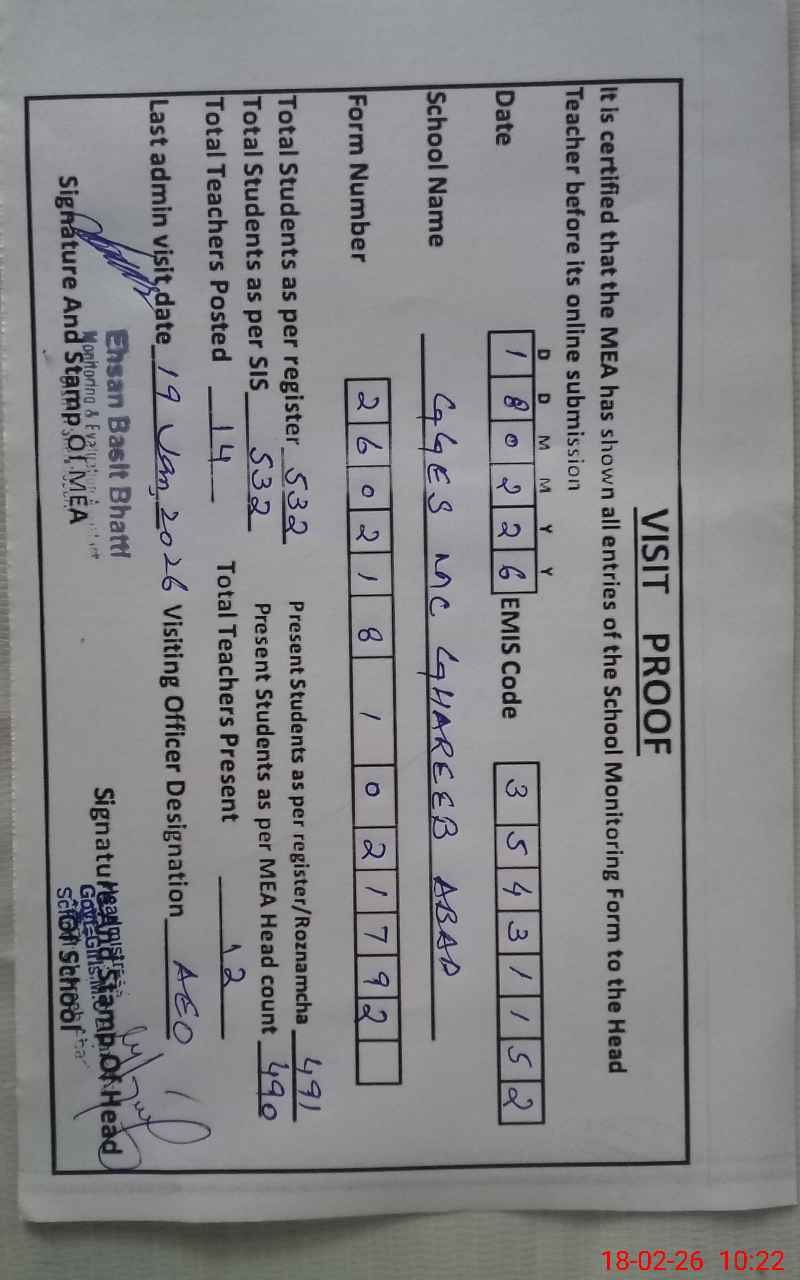 VISIT PROOF
It is certified that the MEA has shown all entries of the School Monitoring Form to the Head
Teacher before its online submission
D D M M Y Y
Date 1 8 0 2 2 6 EMIS Code 3 5 4 3 1 1 5 2
School Name GGES MC GHAREEB ABAD
Form Number 2 6 0 2 1 8 1 0 2 1 7 9 2
Total Students as per register 532 Present Students as per register/Roznamcha 491
Total Students as per SIS 532 Present Students as per MEA Head count 490
Total Teachers Posted 14 Total Teachers Present 12
Last admin visit date 19 Jan, 2026 Visiting Officer Designation AEO
Ehsan Basit Bhatti
Monitoring & Evaluation
Signature And Stamp Of MEA
Signature And Stamp Of Head
Of School
Headmistress
Govt. Girls M.C.
18-02-26 10:22